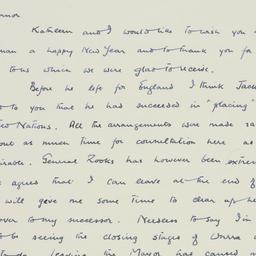 nor
Kathleen and I would like to wish you a
man a happy New Year and to thank you for
tous which we were glad to receive.
Before he left for England I think Jack
to you that he had succeeded in "placing"
ted Nations. All the arrangements were made ra
out as much time for consultation here as
irable. General Rooks has however been extrem
agreed that I can leave at the end of
will give me some time to clear up he
over to my successor. Needless to say I'm
to seeing the closing stages of Unrra
leading the Mayor has caused